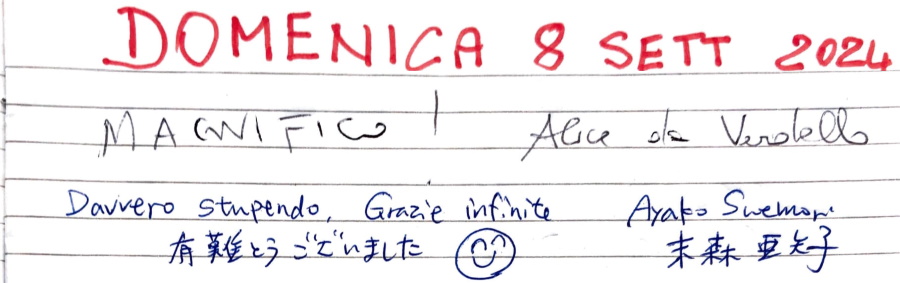 DOMENICA 8 SETT 2024
MAGNIFICO! Alice da Verdello
Davvero stupendo, Grazie infinite Ayako Suemori
有難とうございました 末森 亜矢子